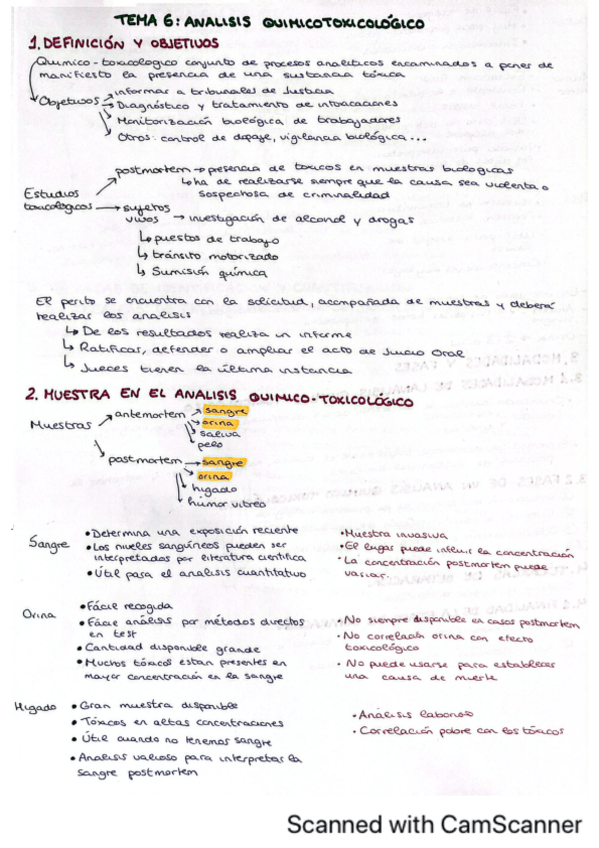 TEMA 6: ANALISIS QUIMICOTOXICOLÓGICO
1. DEFINICIÓN Y OBJETIVOS
Químico-toxicologico conjunto de procesos analiticos encaminados a poner de
manifiesto la presencia de una sustancia tóxica
Objetivos
informar a tribunales de Justicia
Diagnóstico y tratamiento de intoxicaciones
Monitorización biológica de trabajadores
Otros: control de dopaje, vigilancia biológica...
Estudios
toxicologicos
postmortem → presencia de toxicos en muestras biologicas
↳ ha de realizarse siempre que la causa sea violenta o
sospechosa de criminalidad
sujetos
vivos → investigación de alcohol y drogas
↳ puestos de trabajo
↳ tránsito motorizado
↳ Sumisión química
El perito se encuentra con la solicitud, acompañada de muestras y deberá
realizar los analisis
↳ De los resultados realiza un informe
↳ Ratificar, defender o ampliar el acto de Juicio Oral
↳ Jueces tienen la última instancia
2. MUESTRA EN EL ANALISIS QUIMICO-TOXICOLÓGICO
Muestras
antemortem → sangre
orina
saliva
pelo
postmortem → sangre
orina
higado
húmor vitreo
Sangre
• Determina una exposición reciente
• Los niveles sanguíneos pueden ser
interpretados por literatura cientifica
• Útil para el analisis cuantitativo
• Muestra invasiva
• El lugar puede influir la concentración
• La concentración postmortem puede
variar.
Orina
• Fácil recogida
• Fácil análisis por métodos directos
en test
• Cantidad disponible grande
• Muchos tóxicos estan presentes en
mayor concentración en la sangre
• No siempre disponible en casos postmortem
• No correlación orina con efecto
toxicológico
• No puede usarse para establecer
una causa de muerte
Higado
• Gran muestra disponible
• Tóxicos en altas concentraciones
• Útil cuando no tenemos sangre
• Analisis valioso para interpretar la
sangre postmortem
• Analisis laborioso
• Correlación pobre con los tóxicos
Scanned with CamScanner